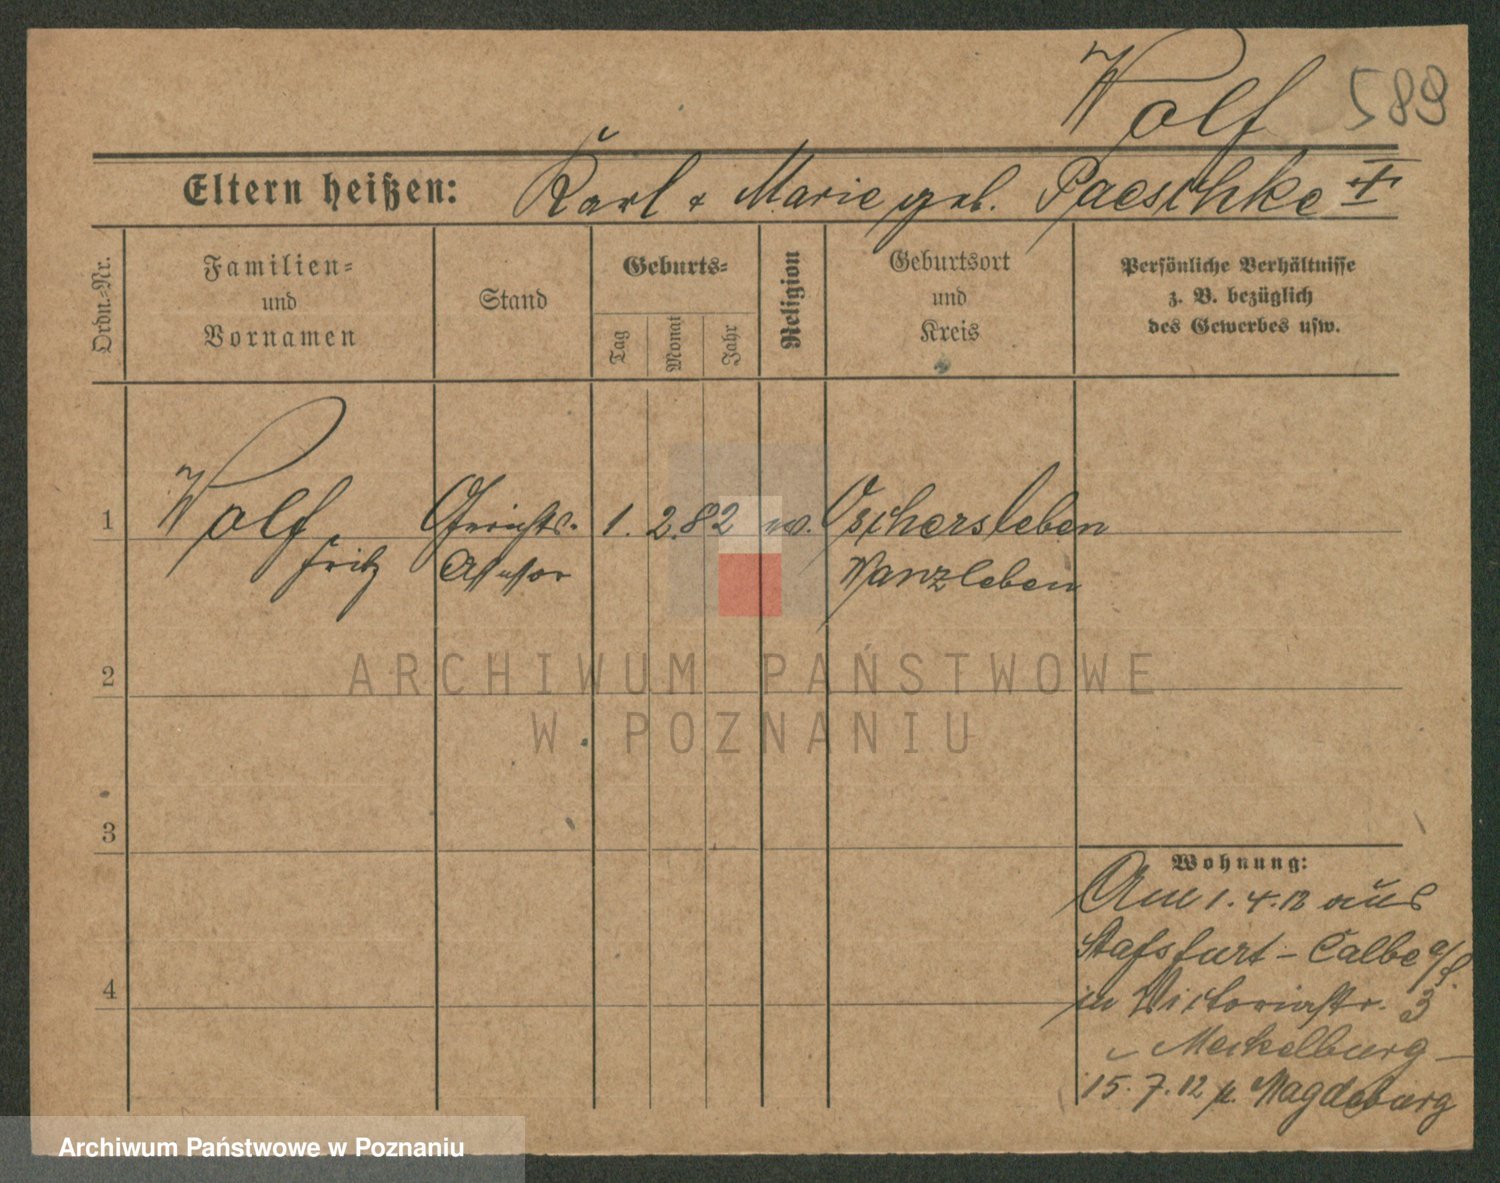 Wolf 589
Eltern heißen: Karl + Marie geb. Paeschke
Ordn=Nr.
Familien=
und
Vornamen
Stand
Geburts=
Tag
Monat
Jahr
Religion
Geburtsort
und
Kreis
Persönliche Verhältnisse
z. B. bezüglich
des Gewerbes usw.
1 Wolf, Gerichts- 1. 2. 82 ev. Oschersleben
Fritz Assessor Wanzleben
2
3
4
Wohnung:
Am 1. 4. 12 aus
Stassfurt - Calbe a/S.
in Victoriastr. 3
Meckelburg -
15. 7. 12 n. Magdeburg
ARCHIWUM PAŃSTWOWE
W POZNANIU
Archiwum Państwowe w Poznaniu